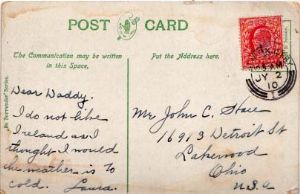 POST CARD
The Communication may be written in this Space.
Put the Address here.
JY 2
10
Dear Daddy.
I do not like
Ireland as I
thought I would
the weather is to
cold. Laura.
Mr John C. Hall
16913 Detroit St
Lakewood
Ohio
U.S.A